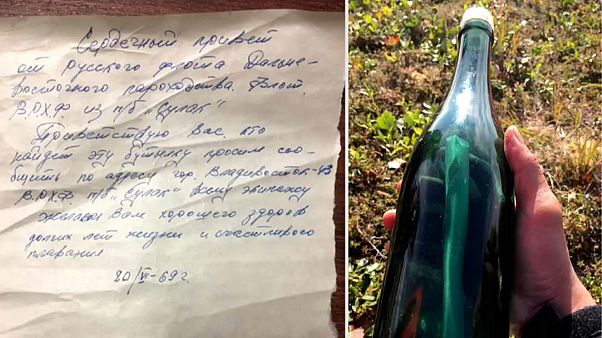 Сердечный привет
от русского флота Дальне-
восточного пароходства.
В.Р.Х.Ф. из п/б "Сулак"
Приветствую Вас, кто
найдет эту бутылку просим соо-
бщить по адресу гор. Владивосток-43
В.Р.Х.Ф. п/б "Сулак" всему экипажу
желаем Вам хорошего здоров
долгих лет жизни и счастливого
плавания
20/VI-69 г.